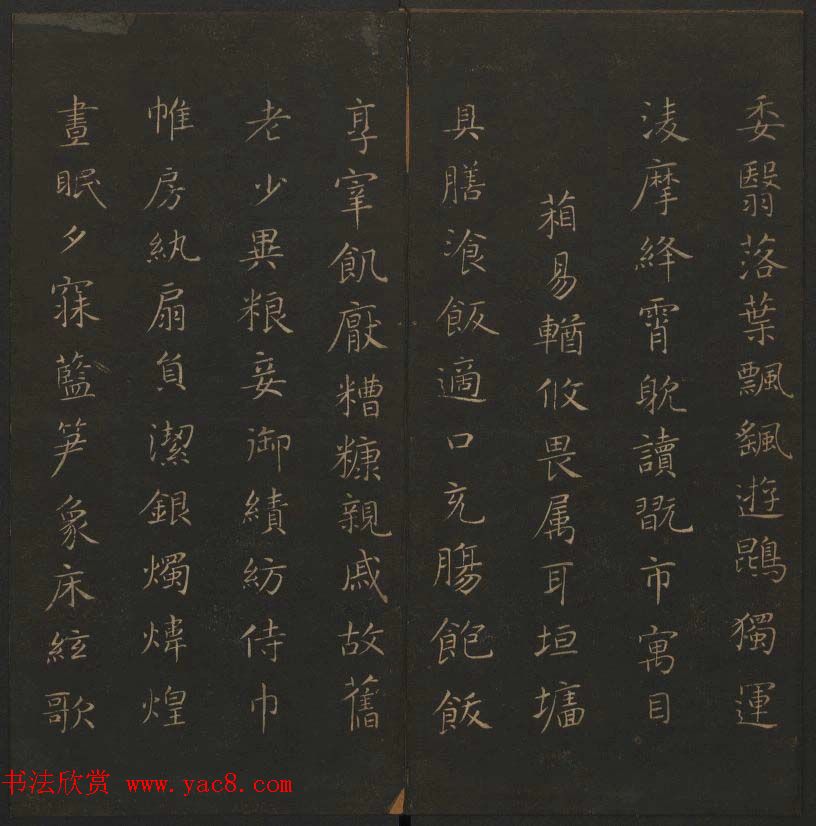 委翳落葉飄颻遊鵾獨運
淩摩絳霄躭讀翫市寓目
葙易輶攸畏属耳垣墻
具膳湌飯適口充腸飽飫
享宰飢厭糟糠親戚故舊
老少異粮妾御績紡侍巾
帷房紈扇負潔銀燭煒煌
晝眠夕寐藍笋象床絃歌
书法欣赏 www.yac8.com